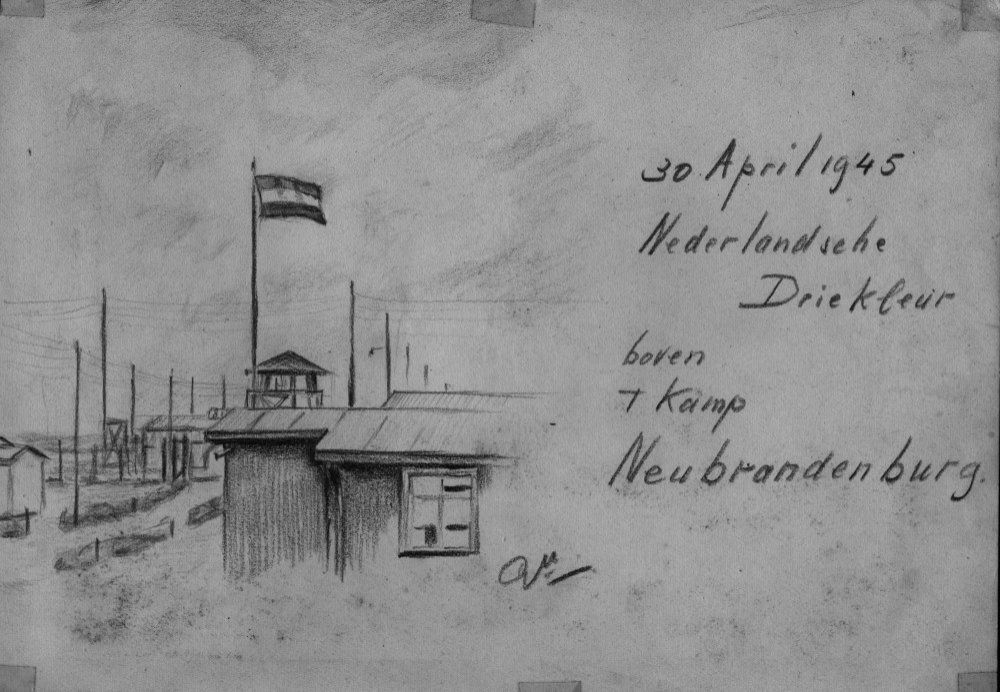 30 April 1945
Nederlandsche
Driekleur
boven
T Kamp
Neubrandenburg.